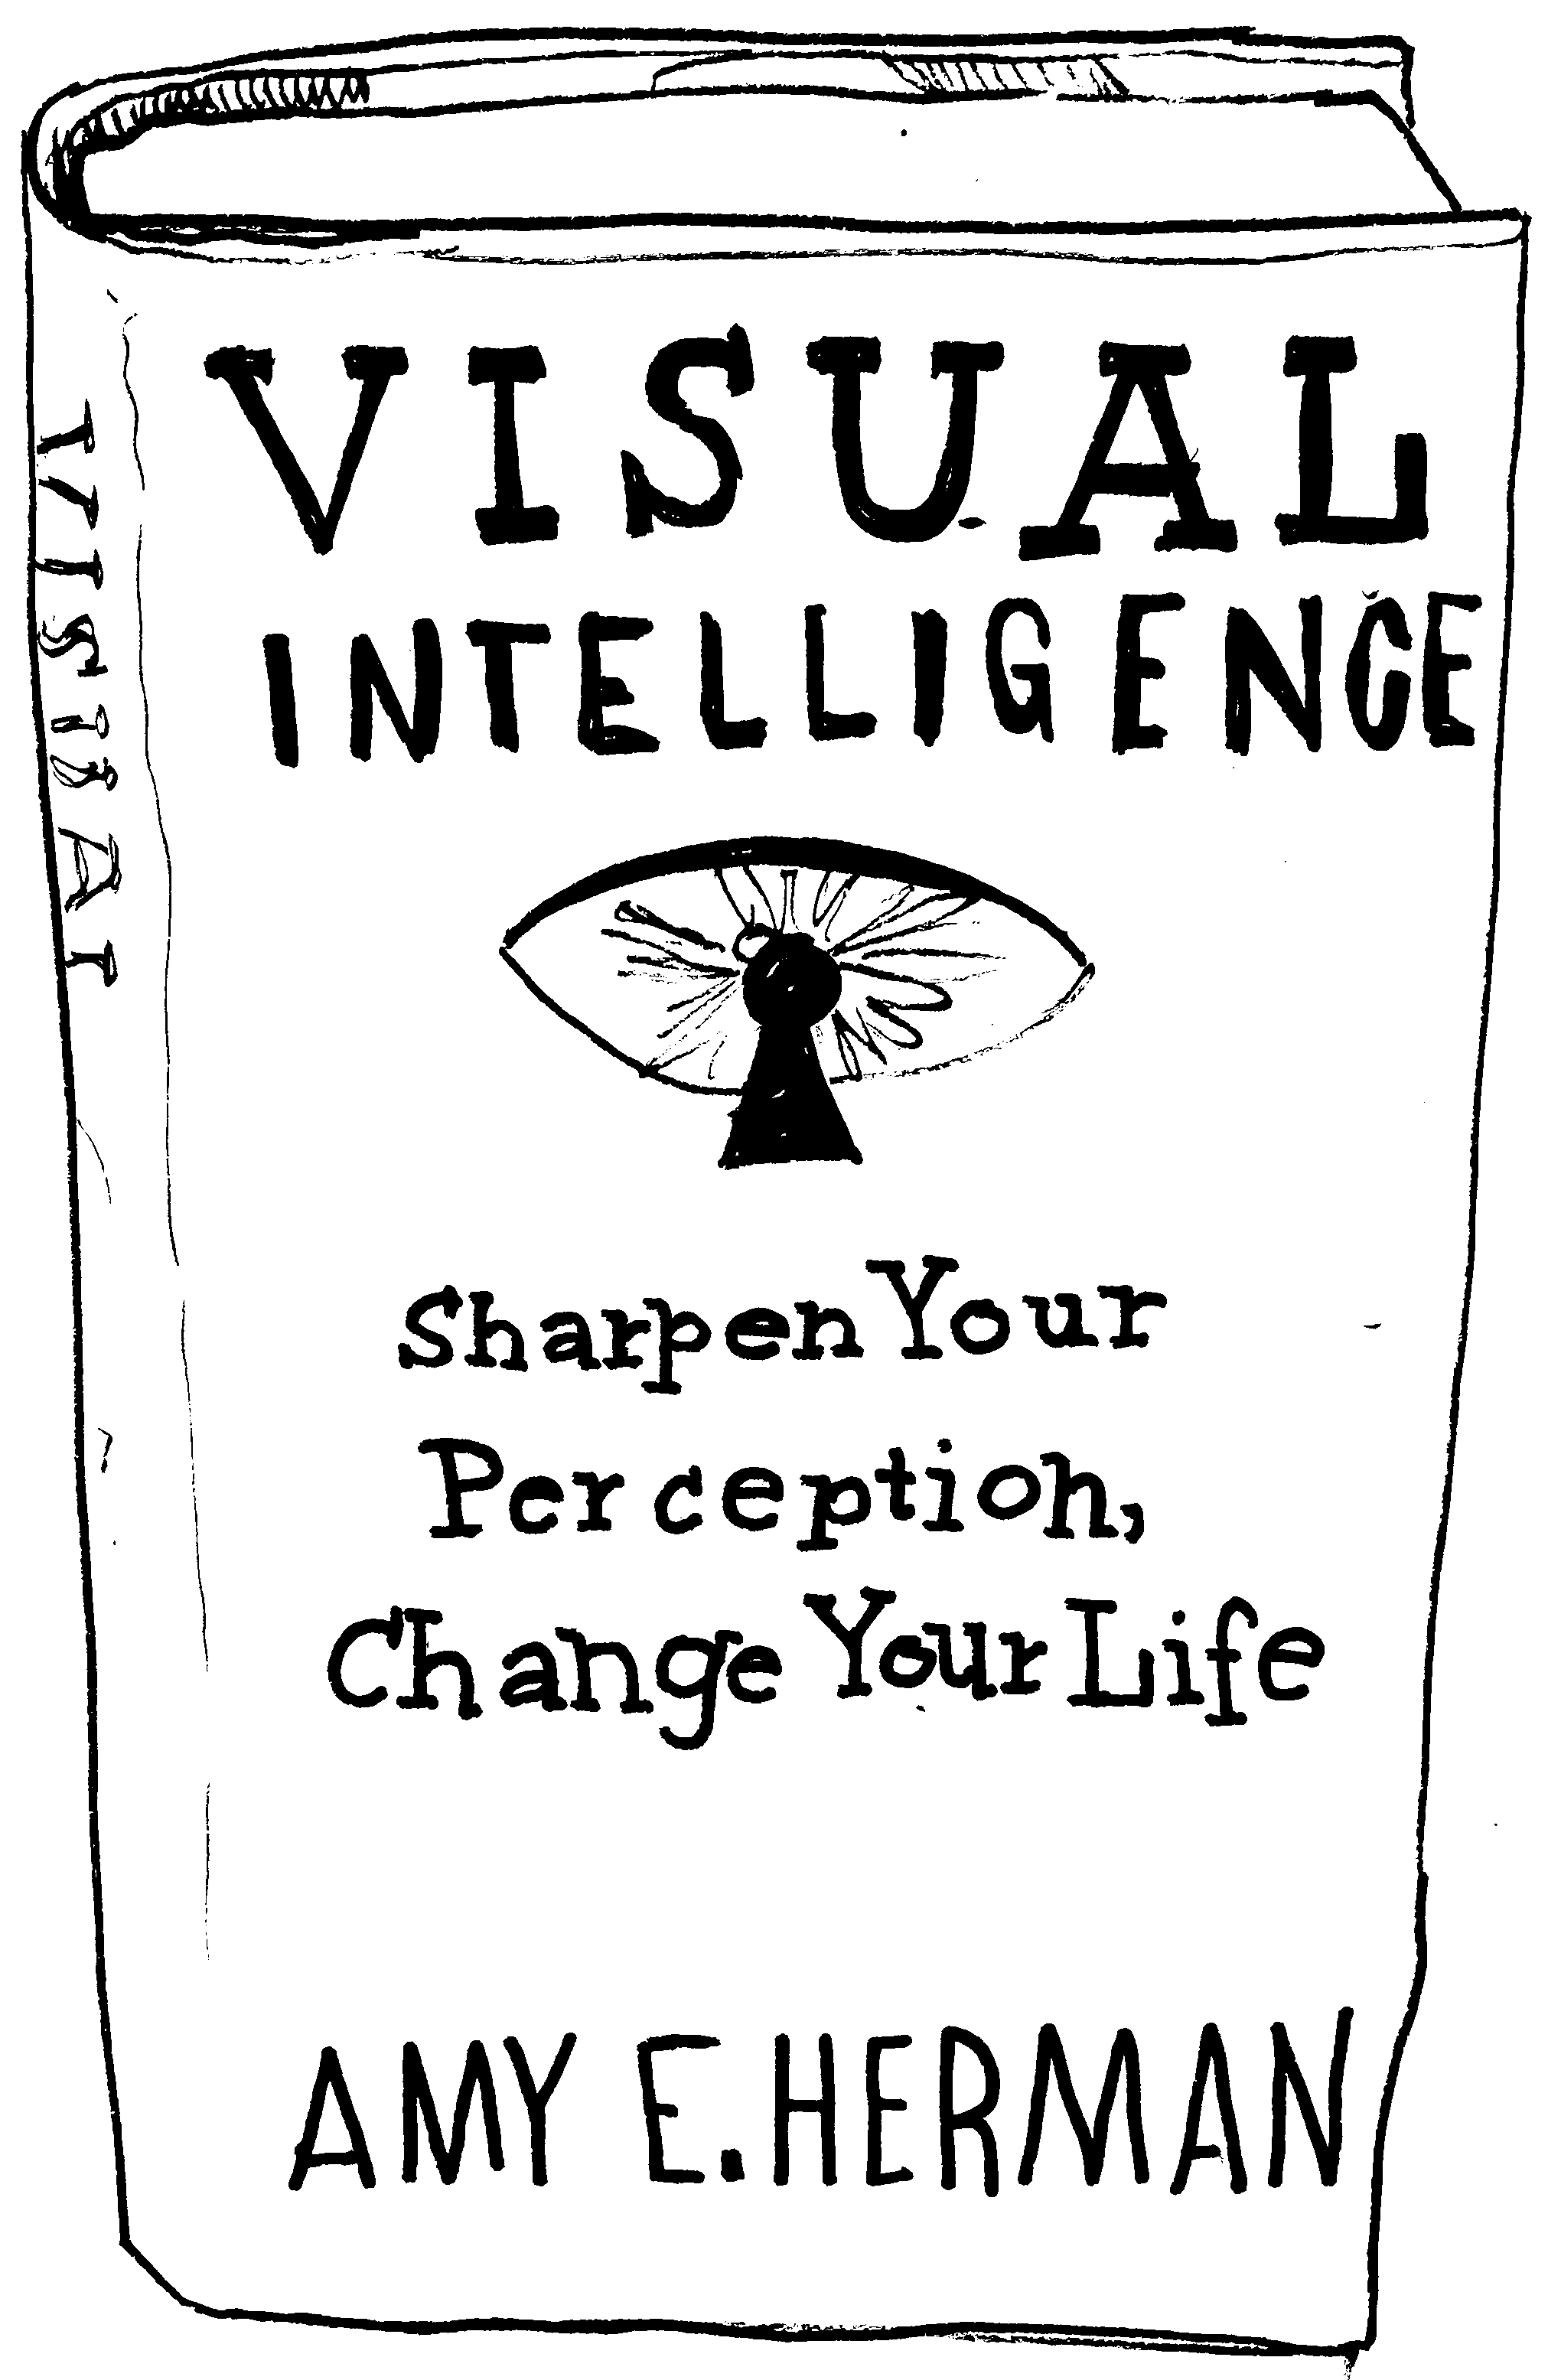 VISUAL
INTELLIGENCE
Sharpen Your
Perception,
Change Your Life
AMY E. HERMAN